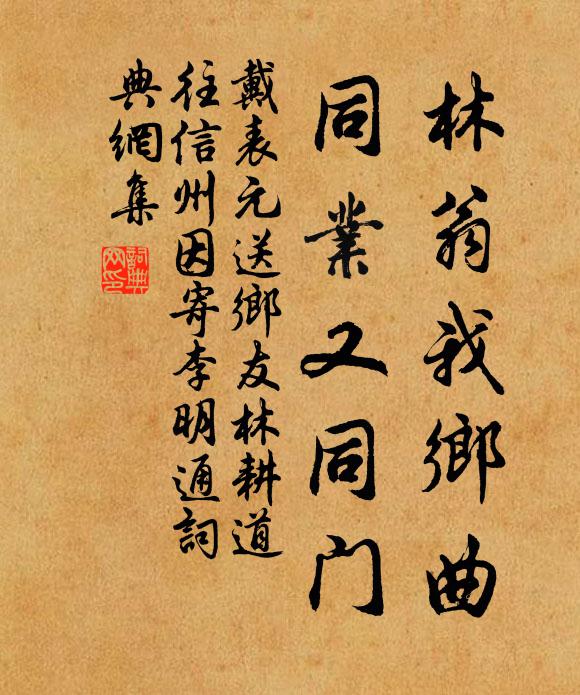 林翁我鄉曲
同業又同门
戴表元送鄉友林耕道
往信州因寄李明通詞
典網集
詞典
网印